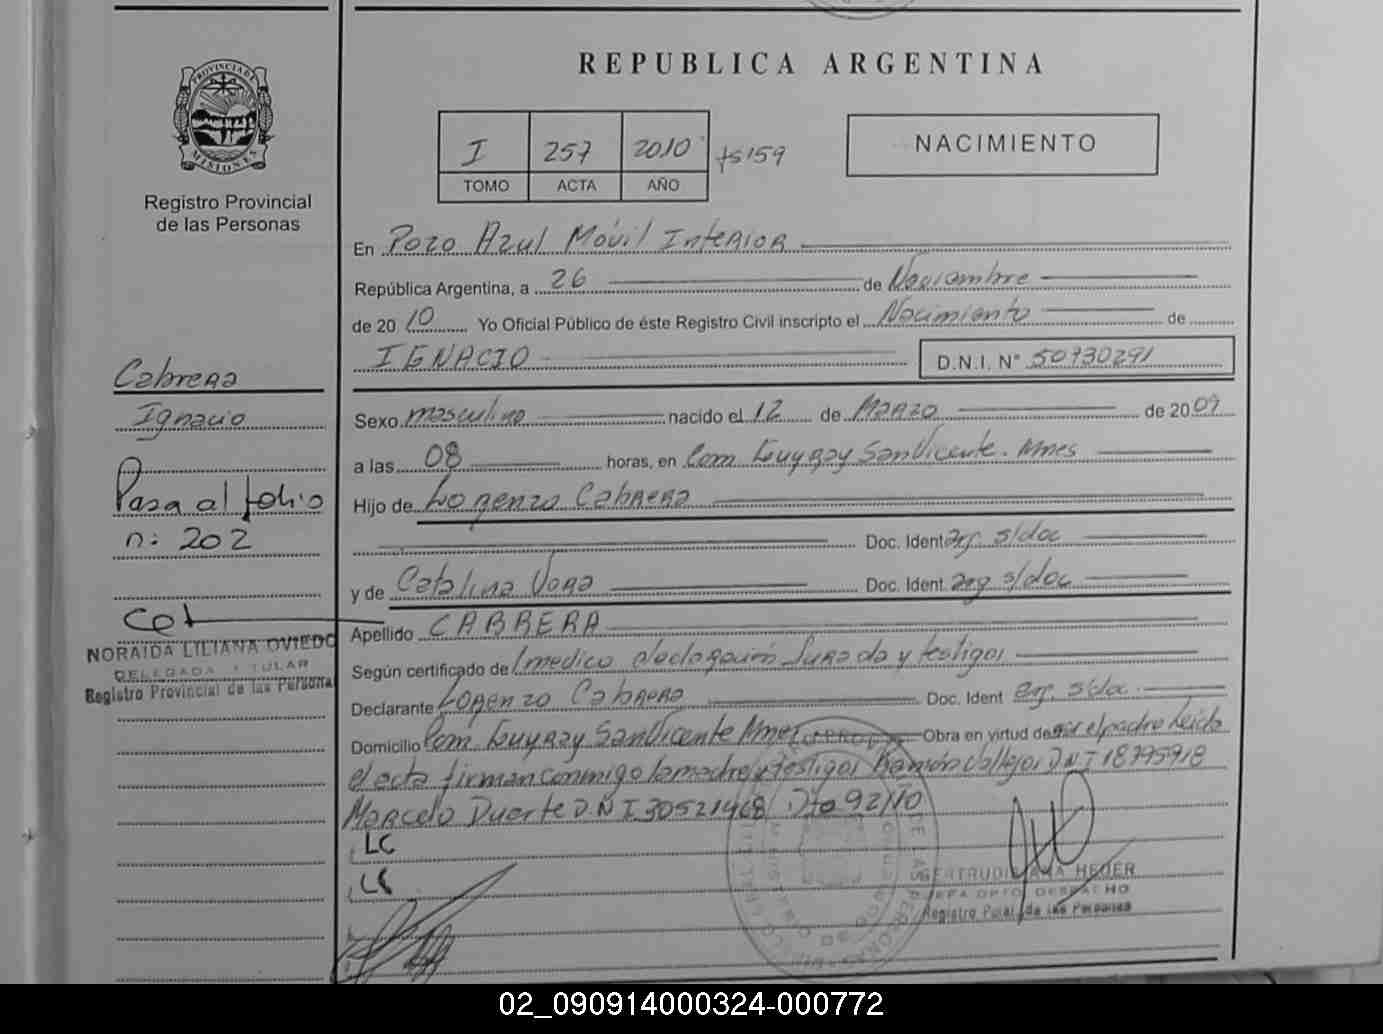 REPUBLICA ARGENTINA
PROVINCIA DE
MISIONES
Registro Provincial
de las Personas
I 257 2010 fs 159
TOMO ACTA AÑO
NACIMIENTO
En Pozo Azul Móvil Interior
República Argentina, a 26 de Noviembre
de 20 10 Yo Oficial Público de éste Registro Civil inscripto el Nacimiento de
IGNACIO D.N.I. N° 50730291
Cabrera
Ignacio
Pasa al folio
n: 202
NORAIDA LILIANA OVIEDO
DELEGADA TITULAR
Registro Provincial de las Personas
Sexo masculino nacido el 12 de Marzo de 20 09
a las 08 horas, en Com. San Vicente. Mnes
Hijo de Lorenzo Cabrera
Doc. Ident arg. s/doc
y de Catalina Vera Doc. Ident. arg s/doc
Apellido CABRERA
Según certificado del medico declaración Jurada y testigos
Declarante Lorenzo Cabrera Doc. Ident arg. s/doc.
Domicilio Com. San Vicente Mnes Obra en virtud de ser el padre Leida
el acta firman conmigo la madre y testigos Ramón Vallejos D.N.I 18795918
Marcelo Duarte D.N.I 30521468 Dto 92/10
LC
GERTRUDIS ANA HEUER
JEFA DPTO DESPACHO
de las Personas
02_090914000324-000772